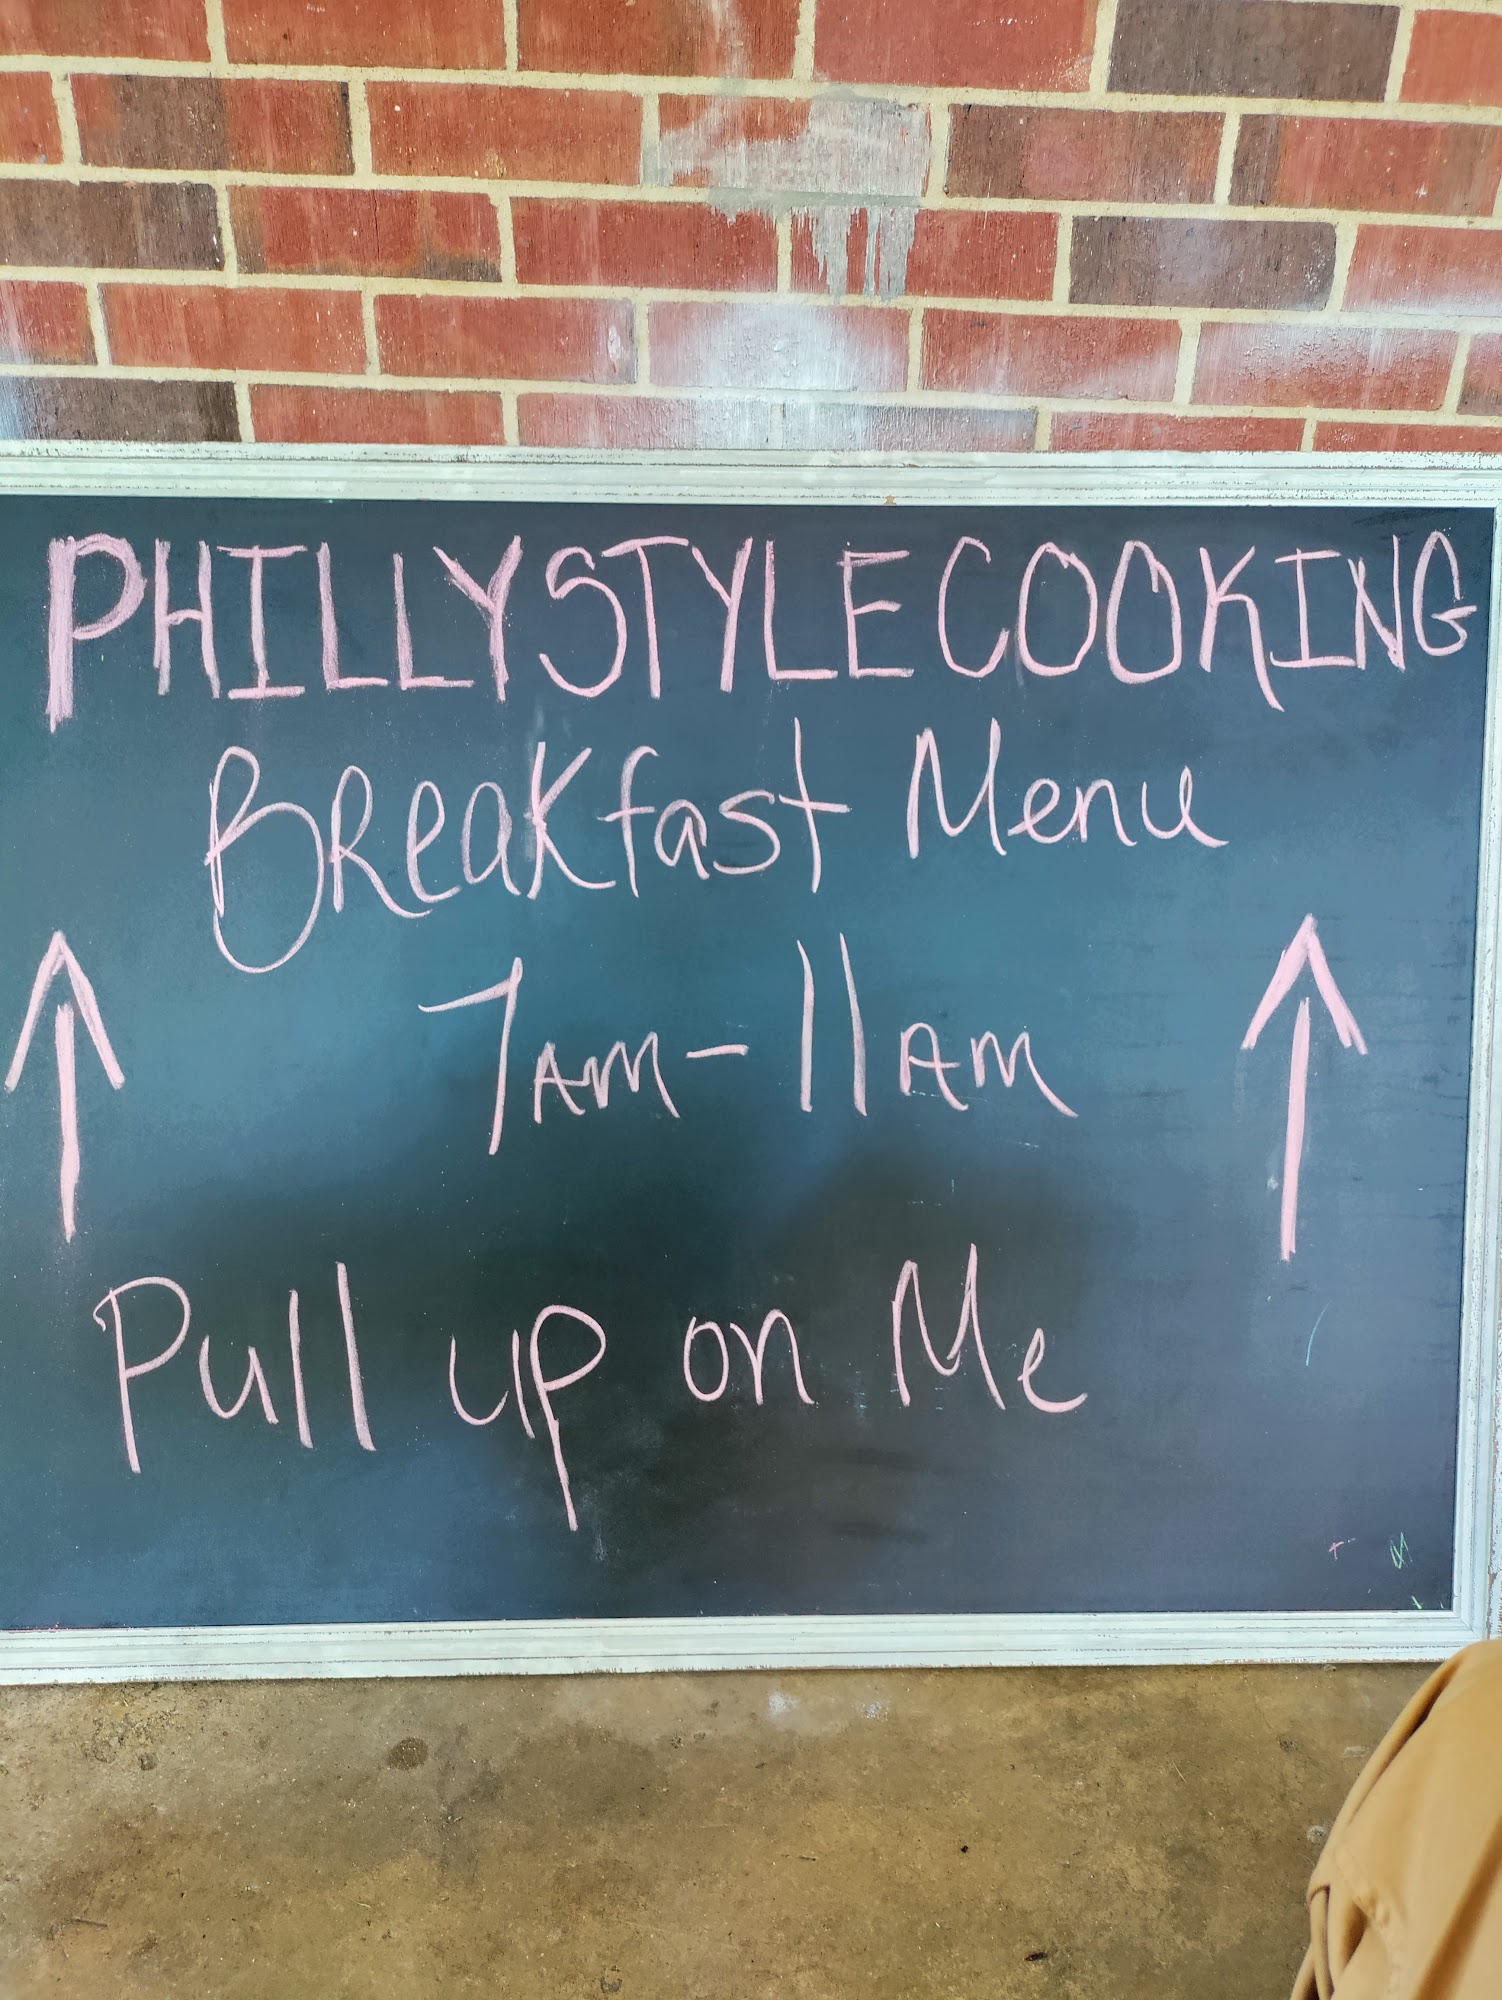 PHILLYSTYLECOOKING
Breakfast Menu
7AM-11AM
Pull up on Me